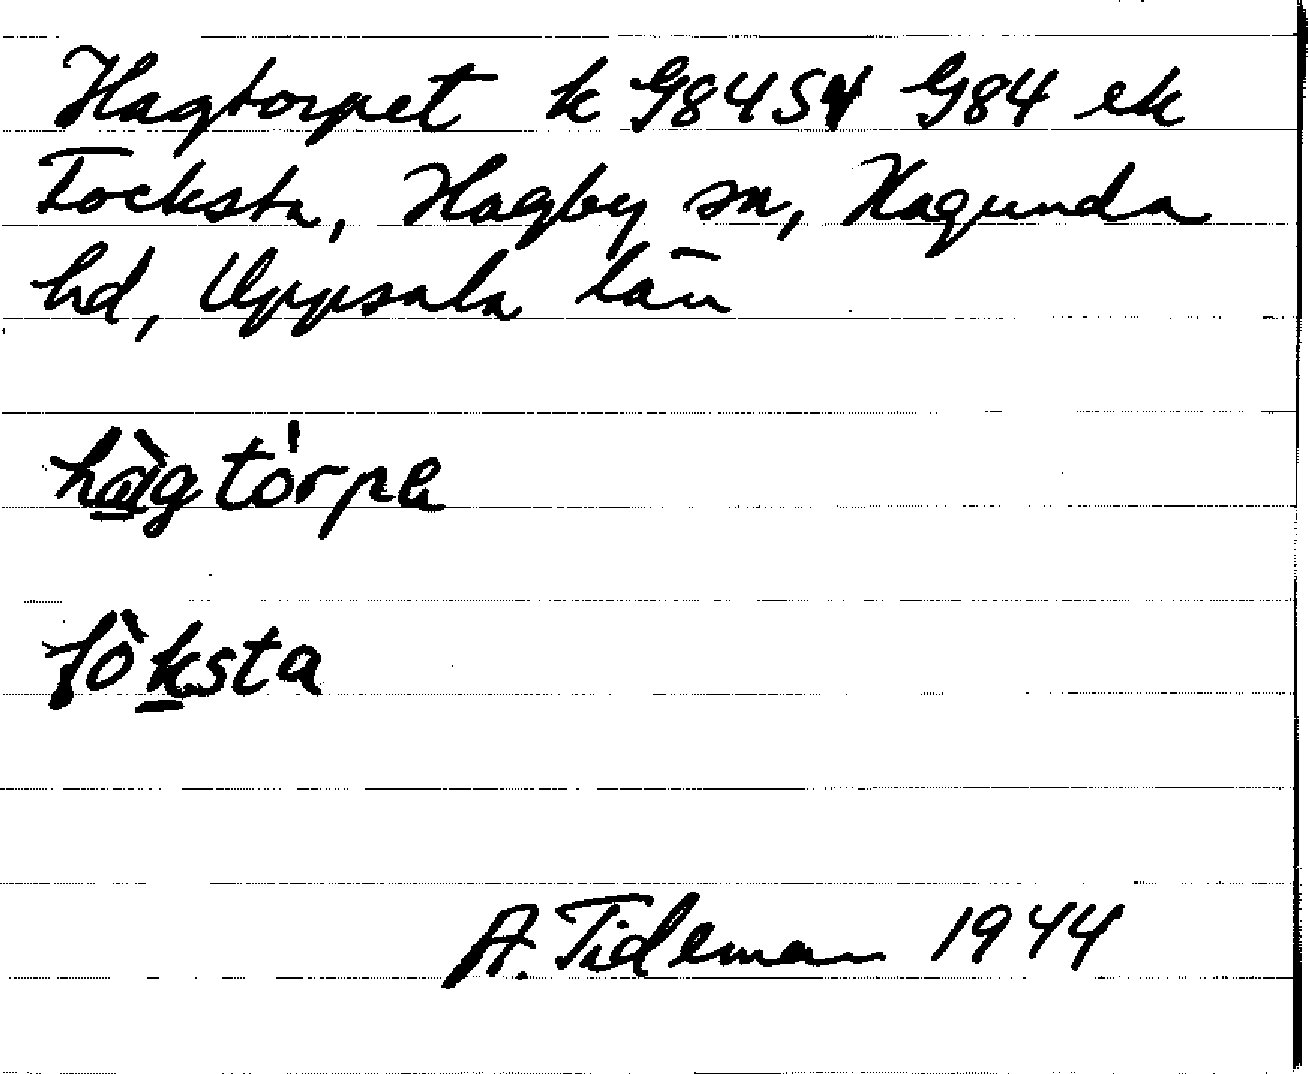 Hagtorpet k G84SV G84 ek
Focksta, Hagby sn, Hagunda
hd, Uppsala län
hàgtórpe
fòksta
A. Tideman 1944